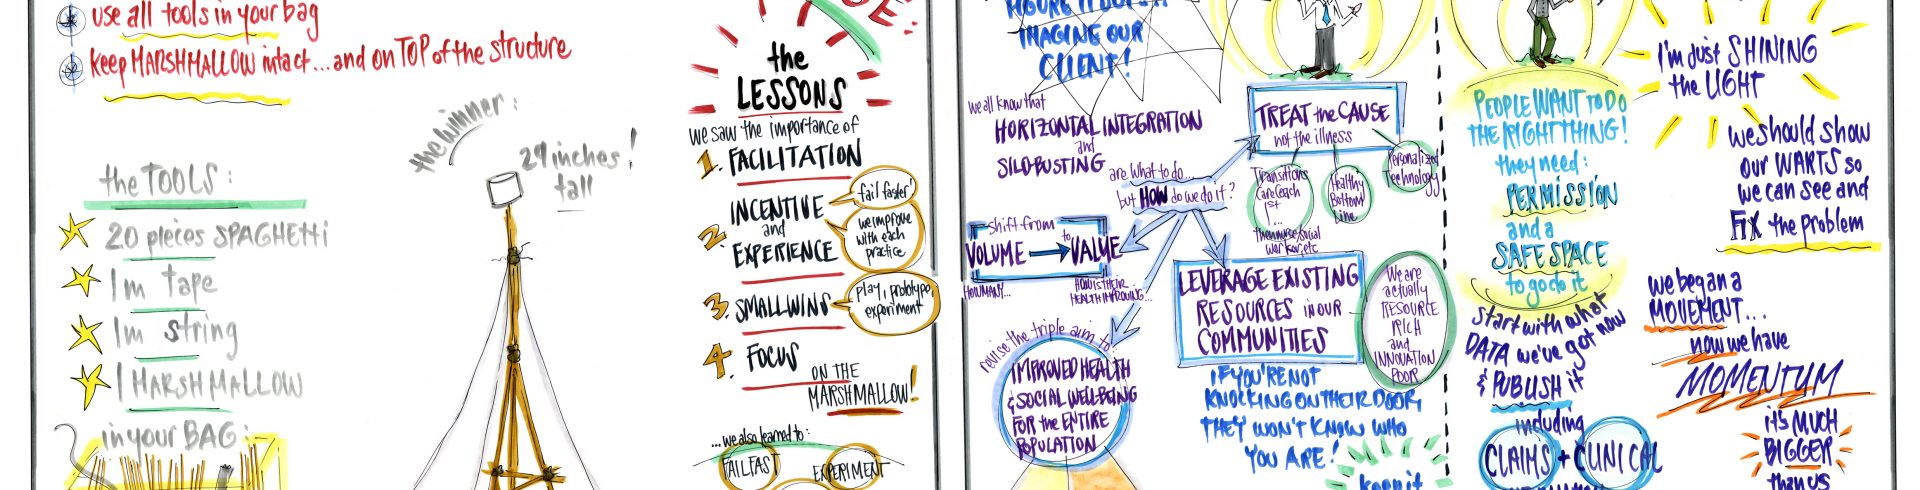 use all tools in your bag
keep MARSHMALLOW intact...and on TOP of the structure
the TOOLS:
20 pieces SPAGHETTI
1m tape
1m string
1 MARSHMALLOW
in your BAG:
the winner:
29 inches tall!
the
LESSONS
we saw the importance of
1. FACILITATION
2. INCENTIVE
and
EXPERIENCE
fail faster!
we improve
with each
practice
3. SMALL WINS
play, prototype,
experiment
4. FOCUS
ON THE
MARSHMALLOW!
...we also learned to:
FAIL FAST
EXPERIMENT
IMAGINE OUR
CLIENT!
we all know that
HORIZONTAL INTEGRATION
and
SILO-BUSTING
are what to do...
but HOW do we do it?
shift from
VOLUME to VALUE
HOW MANY...
HOW IS THEIR
HEALTH IMPROVING...
revise the triple aim to:
IMPROVED HEALTH
& SOCIAL WELL-BEING
FOR the ENTIRE
POPULATION
TREAT the CAUSE
not the illness
Transitions
Care Coach
1st...
then nurse, social
worker, etc
Healthy
Bottom
Line
Personalized
Technology
LEVERAGE EXISTING
RESOURCES in our
COMMUNITIES
We are
actually
RESOURCE
RICH
and
INNOVATION
POOR
IF YOU'RE NOT
KNOCKING ON THEIR DOOR,
THEY WON'T KNOW WHO
YOU ARE!
keep it
PEOPLE WANT TO DO
THE RIGHT THING!
they need:
PERMISSION
and a
SAFE SPACE
to go do it
start with what
DATA we've got now
& PUBLISH it
including
CLAIMS + CLINICAL
I'm just SHINING
the LIGHT
we should show
our WARTS so
we can see and
FIX the problem
we began a
MOVEMENT...
now we have
MOMENTUM
it's MUCH
BIGGER
than us